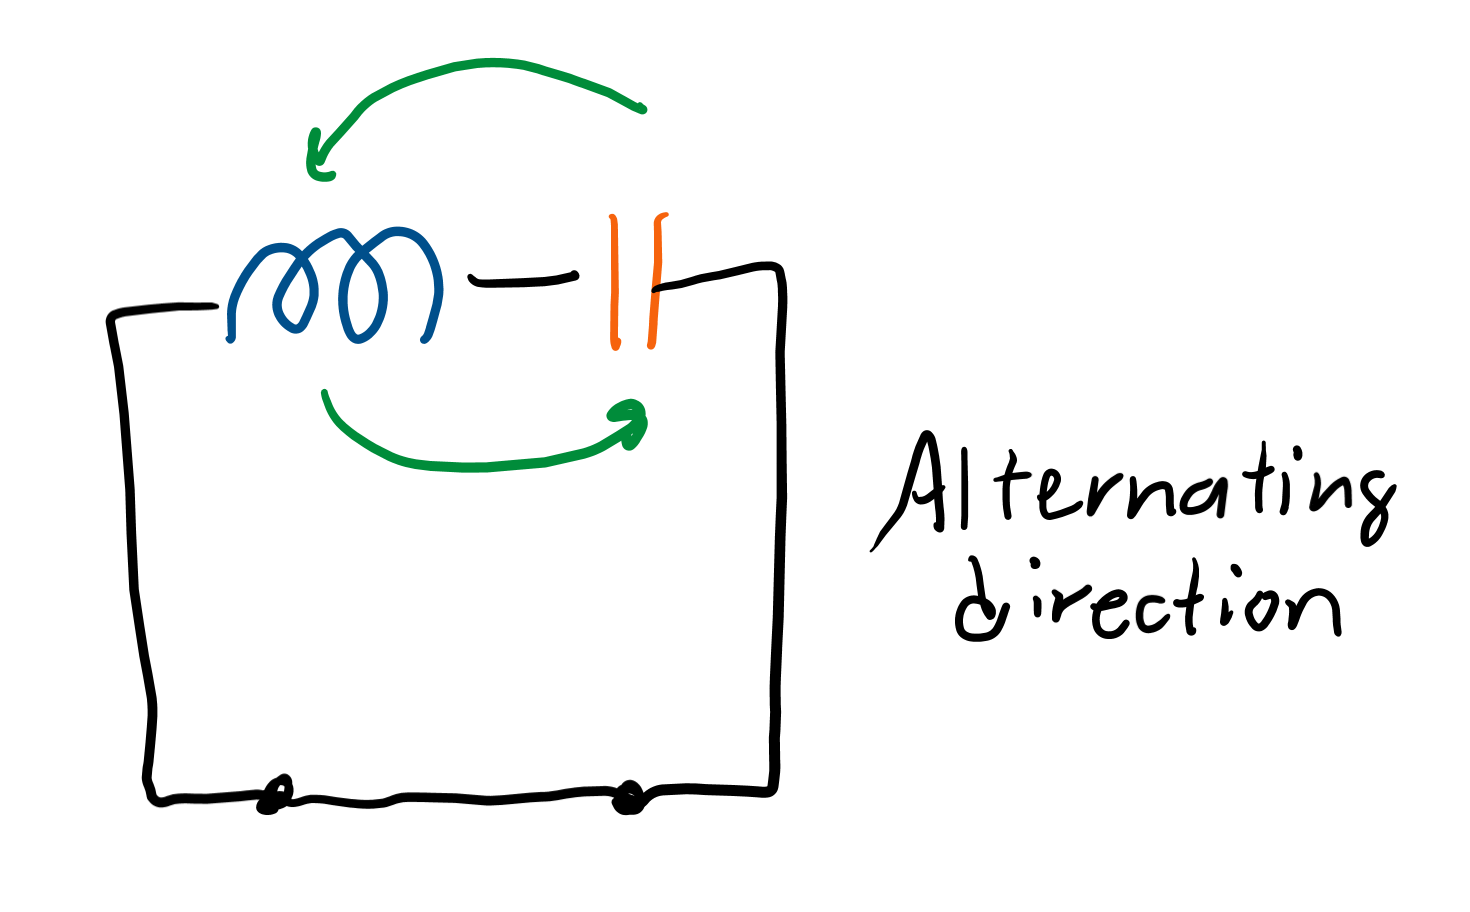 Alternating
direction